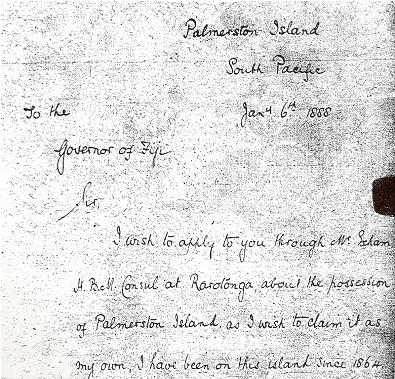 Palmerston Island
South Pacific
To the Jany 6th 1888
Governor of Fiji
Sir,
I wish to apply to you through Mr.
H.B.M. Consul at Rarotonga, about the possession
of Palmerston Island, as I wish to claim it as
my own, I have been on this island since 1864.